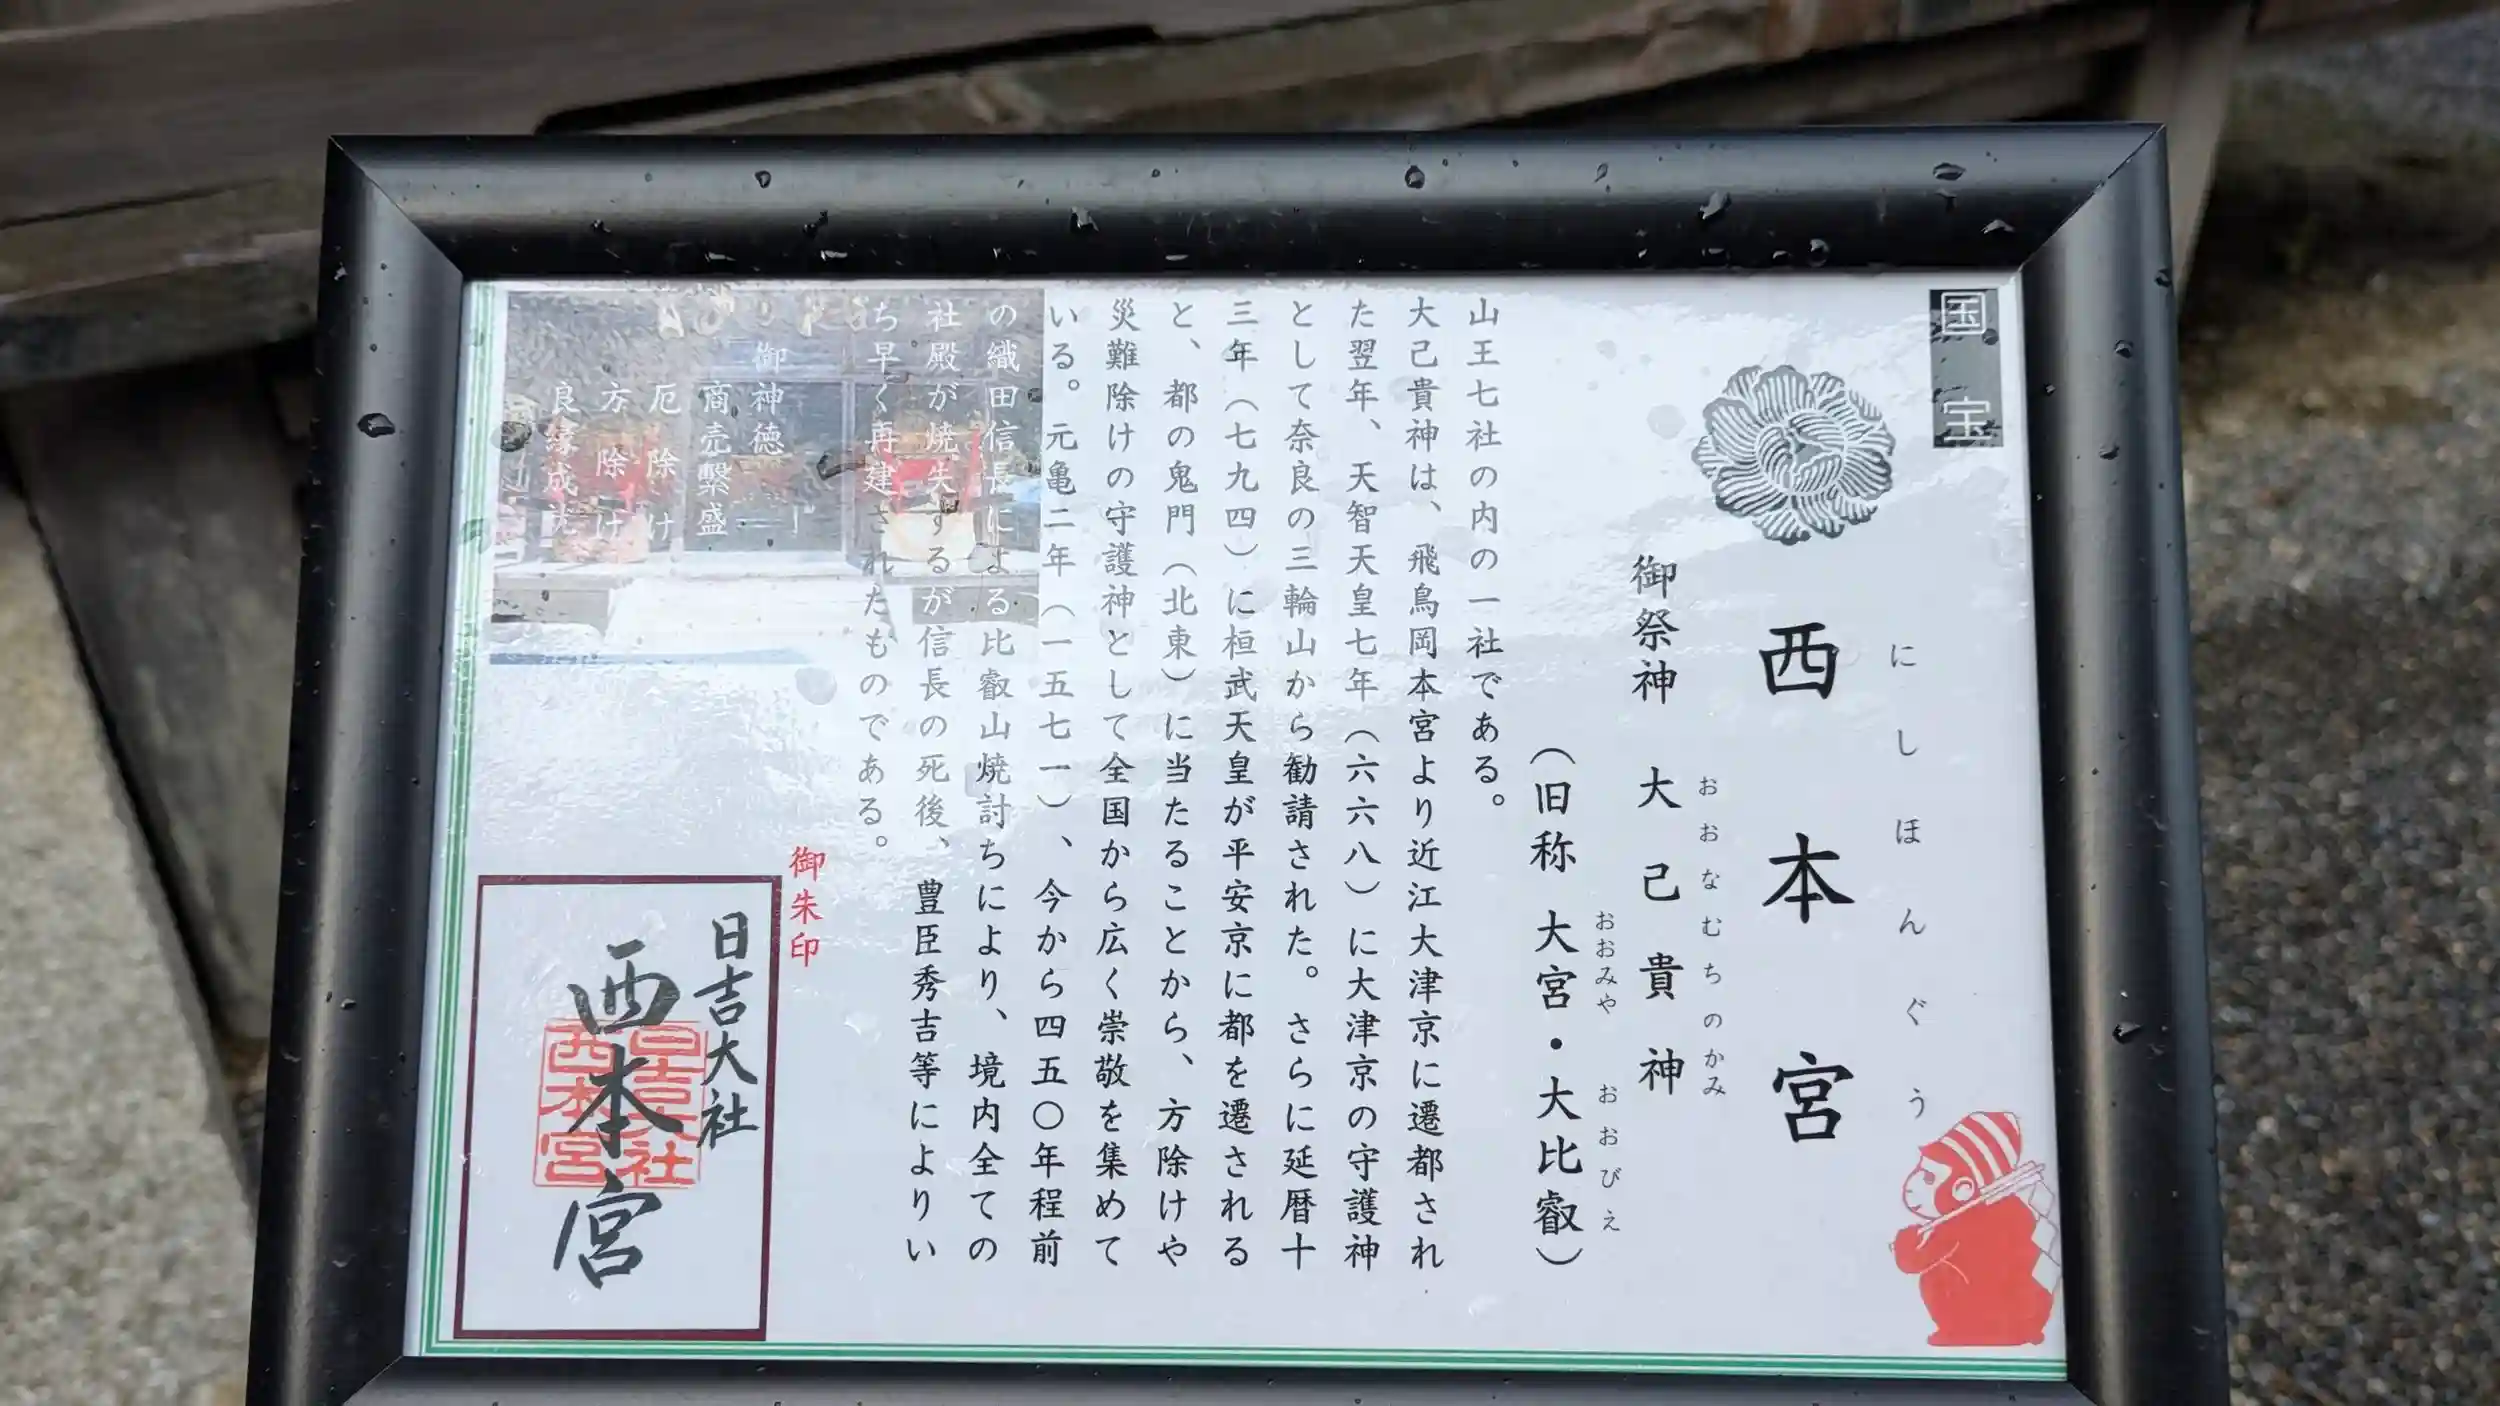 国宝
にしほんぐう
西本宮
おおなむちのかみ
御祭神 大己貴神
おおみや おおびえ
（旧称 大宮・大比叡）
山王七社の内の一社である。
大己貴神は、飛鳥岡本宮より近江大津京に遷都され
た翌年、天智天皇七年（六六八）に大津京の守護神
として奈良の三輪山から勧請された。さらに延暦十
三年（七九四）に桓武天皇が平安京に都を遷される
と、都の鬼門（北東）に当たることから、方除けや
災難除けの守護神として全国から広く崇敬を集めて
いる。元亀二年（一五七一）、今から四五〇年程前
の織田信長による比叡山焼討ちにより、境内全ての
社殿が焼失するが信長の死後、豊臣秀吉等によりい
ち早く再建されたものである。
御神徳
商売繫盛
厄除け
方除け
良縁成就
御朱印
日吉大社
西本宮
日吉大社
西本宮